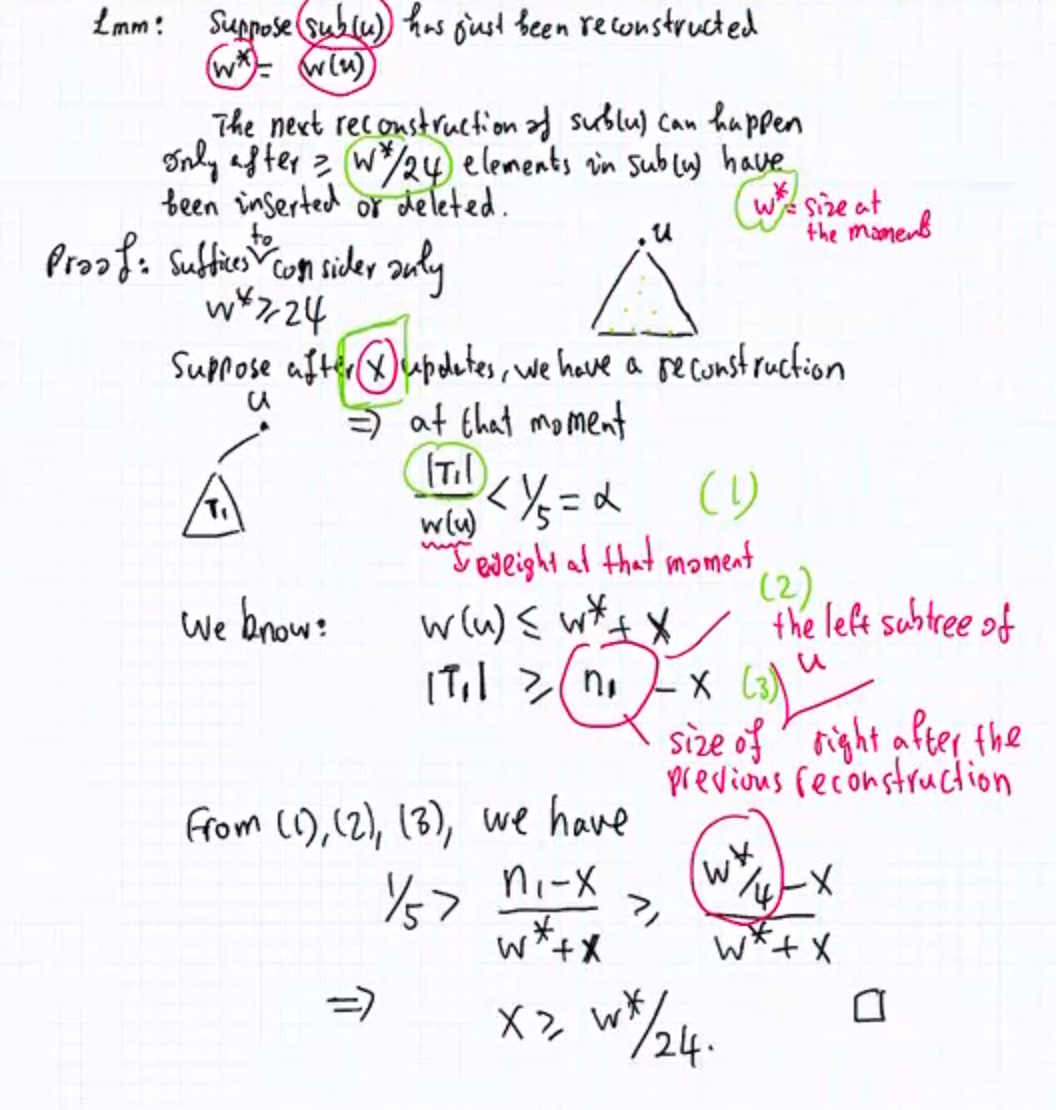 Lmm: Suppose sub(u) has just been reconstructed
w* = w(u)
The next reconstruction of sub(u) can happen
only after ≥ w*/24 elements in sub(u) have
been inserted or deleted.
w* = size at
the moment
Proof: Suffices to consider only
w* ≥ 24
u
Suppose after x updates, we have a reconstruction
u
T₁
⇒ at that moment
|T₁| / w(u) < 1/5 = α (1)
weight at that moment
We know: w(u) ≤ w* + x (2)
|T₁| ≥ n₁ - x (3)
the left subtree of
u
size of right after the
previous reconstruction
From (1), (2), (3), we have
1/5 > (n₁ - x) / (w* + x) ≥ (w*/4 - x) / (w* + x)
⇒ x ≥ w*/24. □